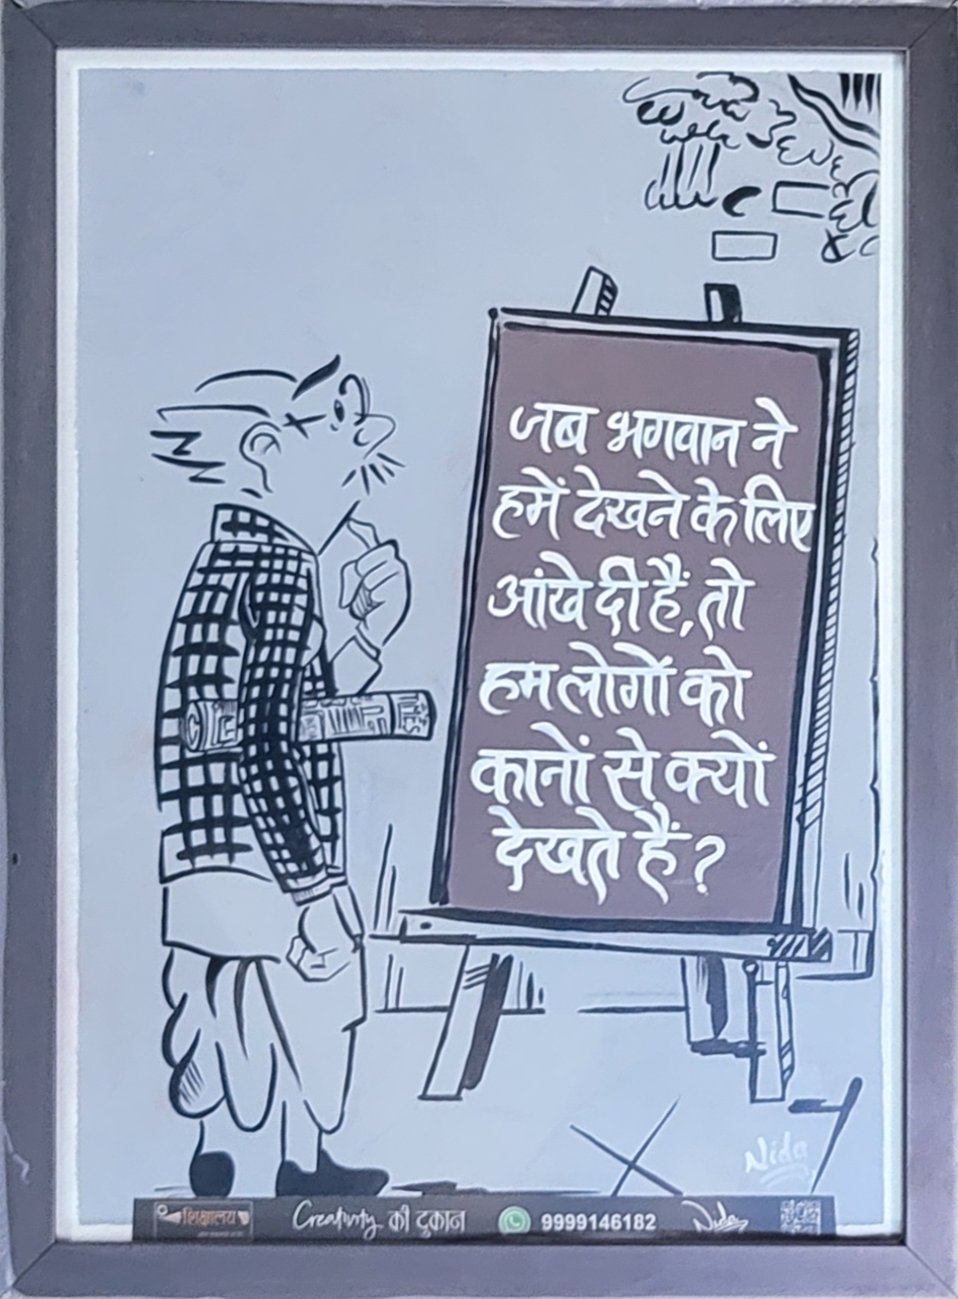 जब भगवान ने
हमें देखने के लिए
आंखे दी हैं, तो
हम लोगों को
कानों से क्यों
देखते हैं?
Nida
शिक्षालय
Creativity की दुकान
9999146182
Nida